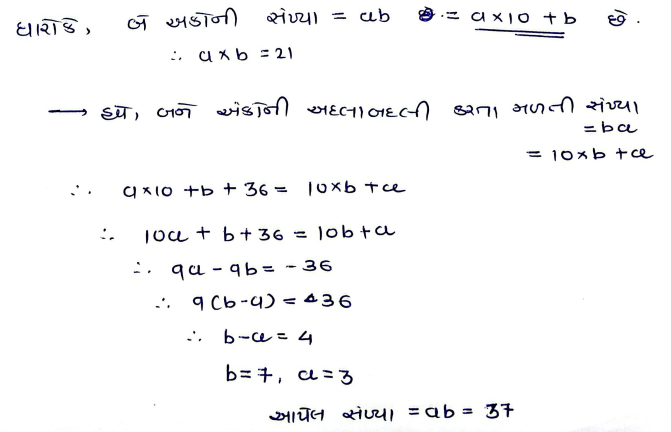 ધારોકે, બે અંકોની સંખ્યા = ab = a×10 + b છે.
∴ a×b = 21
→ હવે, બંને અંકોની અદલાબદલી કરતા મળતી સંખ્યા
= ba
= 10×b + a
∴ a×10 + b + 36 = 10×b + a
∴ 10a + b + 36 = 10b + a
∴ 9a - 9b = - 36
∴ 9(b-a) = 36
∴ b-a = 4
b = 7, a = 3
આપેલ સંખ્યા = ab = 37